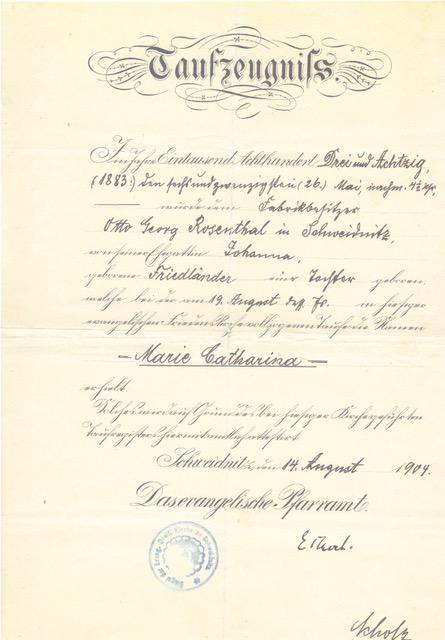 Taufzeugniss.
Im Jahre Eintausend Achthundert Drei und Achtzig,
(1883:) den sechs und zwanzigsten (26.) Mai, nachm. 4½ Uhr,
wurde dem Fabrikbesitzer
Otto Georg Rosenthal in Schweidnitz,
von seiner Ehegattin Johanna,
geborene Friedländer eine Tochter geboren,
welche bei der am 19. August dess. Js. in hiesiger
evangelischen Friedenskirche vollzogenen Taufe die Namen
- Marie Catharina -
erhielt.
Solches wird auf Grund des bei hiesiger Kirche geführten
Taufregisters hiermit amtlich attestirt
Schweidnitz, den 14. August 1904.
Das evangelische Pfarramt.
Scholz